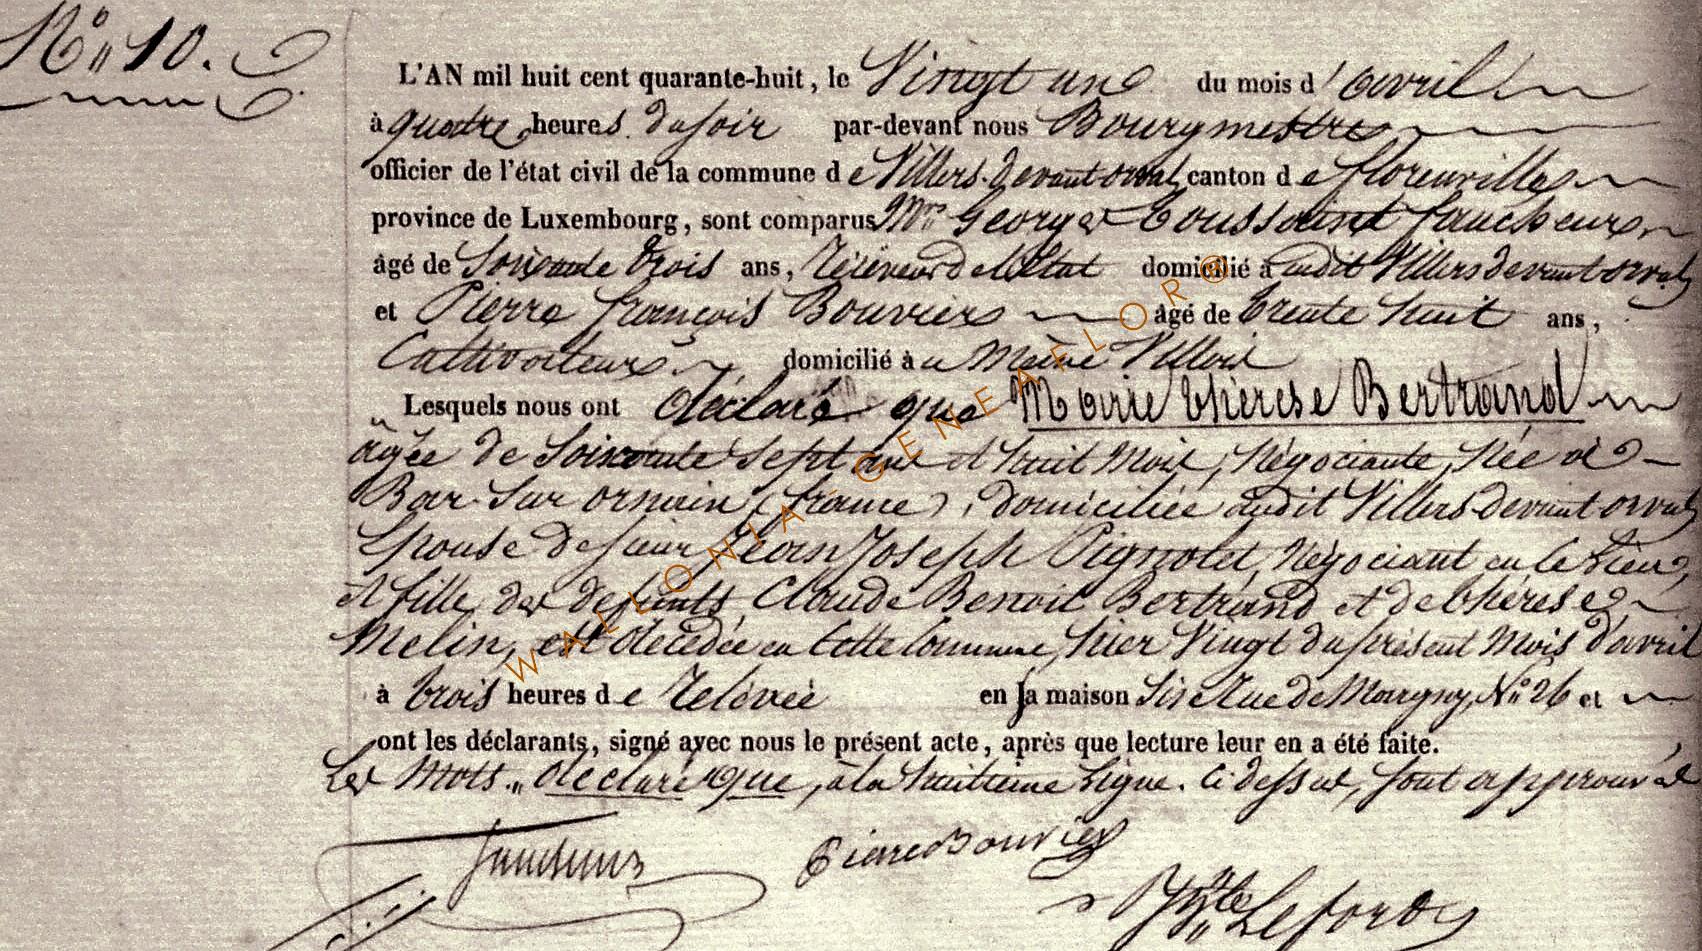 N° 10.
L'AN mil huit cent quarante-huit, le Vingt un du mois d'avril
à quatre heures du soir par-devant nous Bourgmestre
officier de l'état civil de la commune de Villers-devant-orval canton de florenville
province de Luxembourg, sont comparus Mrs George Toussaint faucheur
âgé de Soixante trois ans, de l'Etat domicilié à audit Villers devant orval
et Pierre françois Bouvier âgé de trente huit ans,
Cultivateur domicilié à u Même Villers
Lesquels nous ont déclaré que Marie thérèse Bertrand
âgée de Soixante sept ans et huit Mois, Négociante, Née à
Bar-Sur ornain (france), domiciliée audit Villers devant orval
Epouse de sieur Jean Joseph Pignolet, Négociant en ce lieu,
et fille des défunts Claude Benoit Bertrand et de thérèse
Melin, est décédée en cette Commune, hier Vingt du présent Mois d'avril
à trois heures de relevée en la maison Sise Rue de Margny, N° 26 et
ont les déclarants, signé avec nous le présent acte, après que lecture leur en a été faite.
Les Mots „déclaré que, à la huitième Ligne. Ci dessus, sont approuvés
Pierre Bouvier
Lefort
WALLONIA GENEAFLOR®